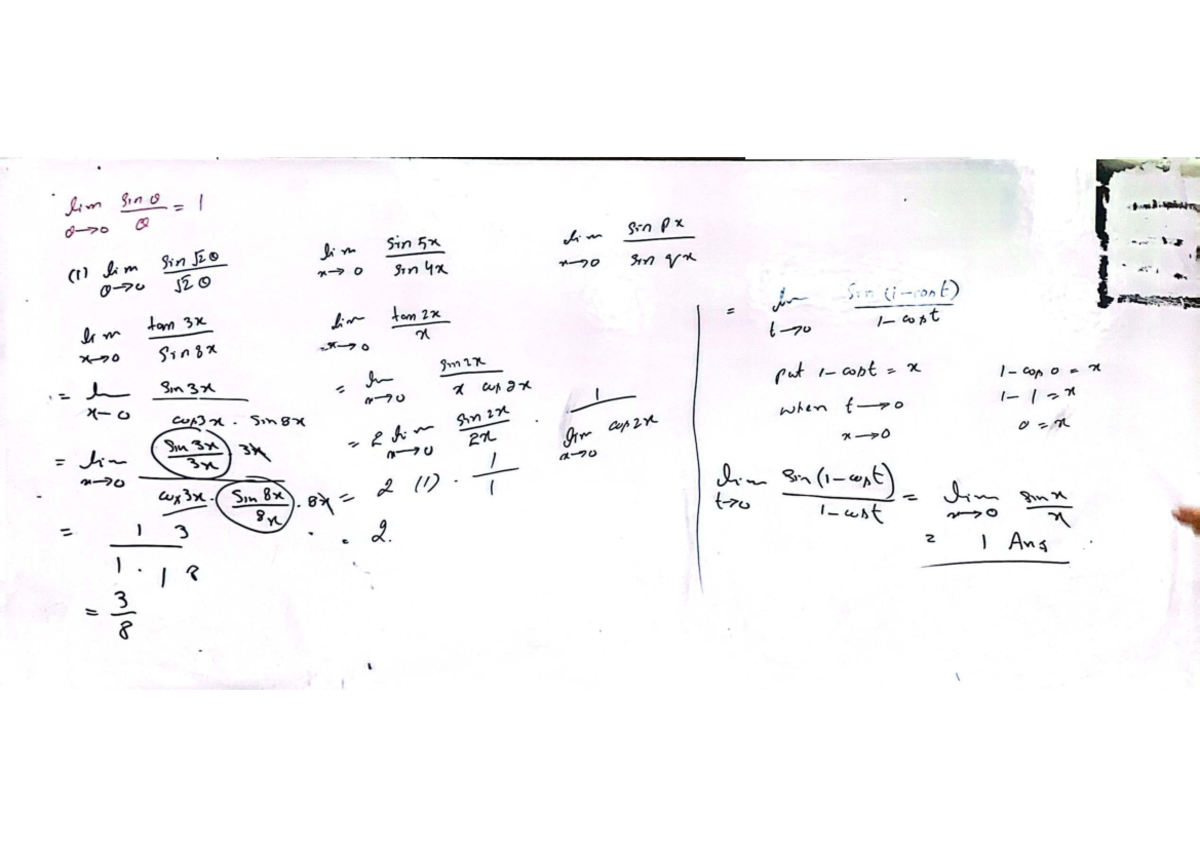 lim θ→0 sin θ / θ = 1
(1) lim θ→0 sin √2 θ / √2 θ
lim x→0 sin 5x / sin 4x
lim x→0 sin px / sin qx
lim x→0 tan 3x / sin 8x
= lim x→0 sin 3x / cos 3x . sin 8x
= lim x→0 sin 3x / 3x . 3x / cos 3x . sin 8x / 8x . 8x
= 1 3 / 1 . 1 8
= 3/8
lim x→0 tan 2x / x
= lim x→0 sin 2x / x cos 2x
= 2 lim x→0 sin 2x / 2x . 1 / lim x→0 cos 2x
= 2 (1) . 1/1
= 2.
= lim t→0 sin (1-cos t) / 1-cos t
put 1-cos t = x
when t→0
x→0
1-cos 0 = x
1-1 = x
0 = x
lim t→0 sin (1-cos t) / 1-cos t = lim x→0 sin x / x
= 1 Ans